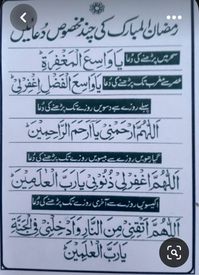 رمضان المبارک کی چند مخصوص دعائیں
سحر میں پڑھنے کی دُعا يَا وَاسِعَ الْمَغْفِرَةِ
عصر سے مغرب تک پڑھنے کی دُعا يَا وَاسِعَ الْفَضْلِ اغْفِرْلِيْ
پہلے روزے سے دسویں روزے تک پڑھنے کی دُعا
اَللّٰهُمَّ ارْحَمْنِيْ يَا اَرْحَمَ الرَّاحِمِيْنَ
گیارھویں روزے سے بیسویں روزے تک پڑھنے کی دُعا
اَللّٰهُمَّ اغْفِرْلِيْ ذُنُوْبِيْ يَارَبَّ الْعٰلَمِيْنَ
اکیسویں روزے سے آخری روزے تک پڑھنے کی دُعا
اَللّٰهُمَّ اَعْتِقْنِيْ مِنَ النَّارِ وَاَدْخِلْنِيْ فِي الْجَنَّةِ
يَارَبَّ الْعٰلَمِيْنَ